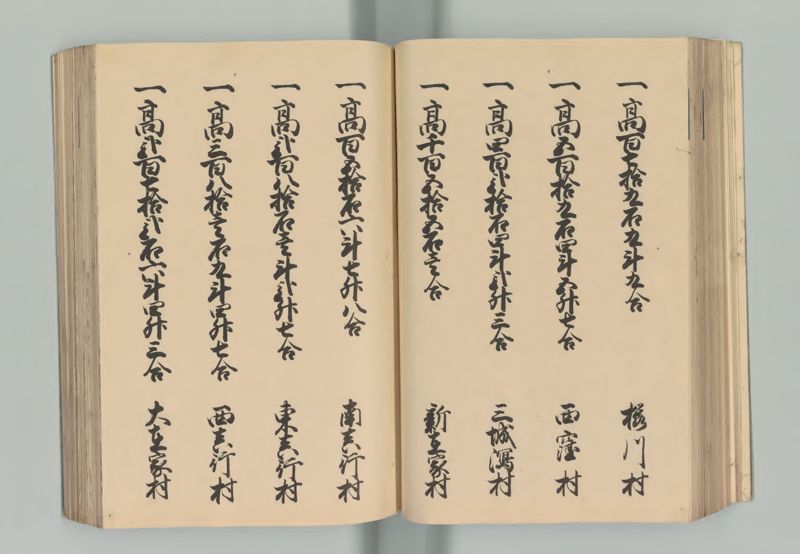 一高百七拾九石九斗九合 桜川村
一高五百拾九石四斗五升七合 西窪村
一高四百弐拾石四斗弐升三合 三城潟村
一高千百五拾五石壱合 新在家村
一高百五拾石六斗七升八合 南真行村
一高弐百八拾石壱斗弐升七合 東真行村
一高三百八拾壱石九斗四升七合 西真行村
一高弐百七拾弐石六斗四升三合 大在家村